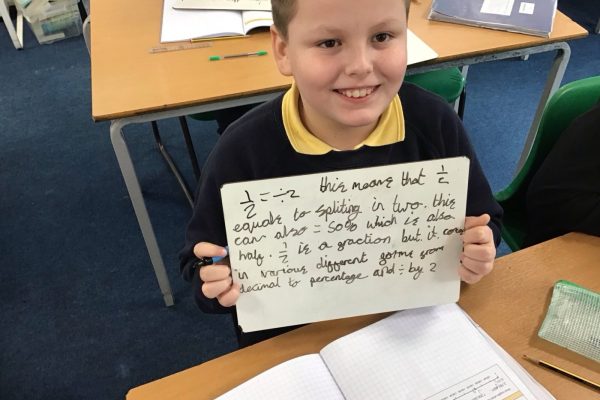 1/2 = ÷2 this means that 1/2
equals to spliting in two. this
can also = 50% which is also
half. 1/2 is a fraction but it
in various different from
decimal to percentage and ÷ by 2